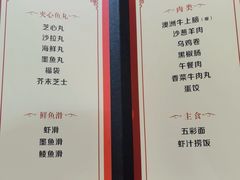 夹心鱼丸
芝心丸
沙拉丸
海鲜丸
墨鱼丸
福袋
芥末芝士
鲜鱼滑
虾滑
墨鱼滑
鲮鱼滑
肉类
澳洲牛上脑
沙葱羊肉
乌鸡卷
黑椒肠
午餐肉
香菜牛肉丸
蛋饺
主食
五彩面
虾汁捞饭